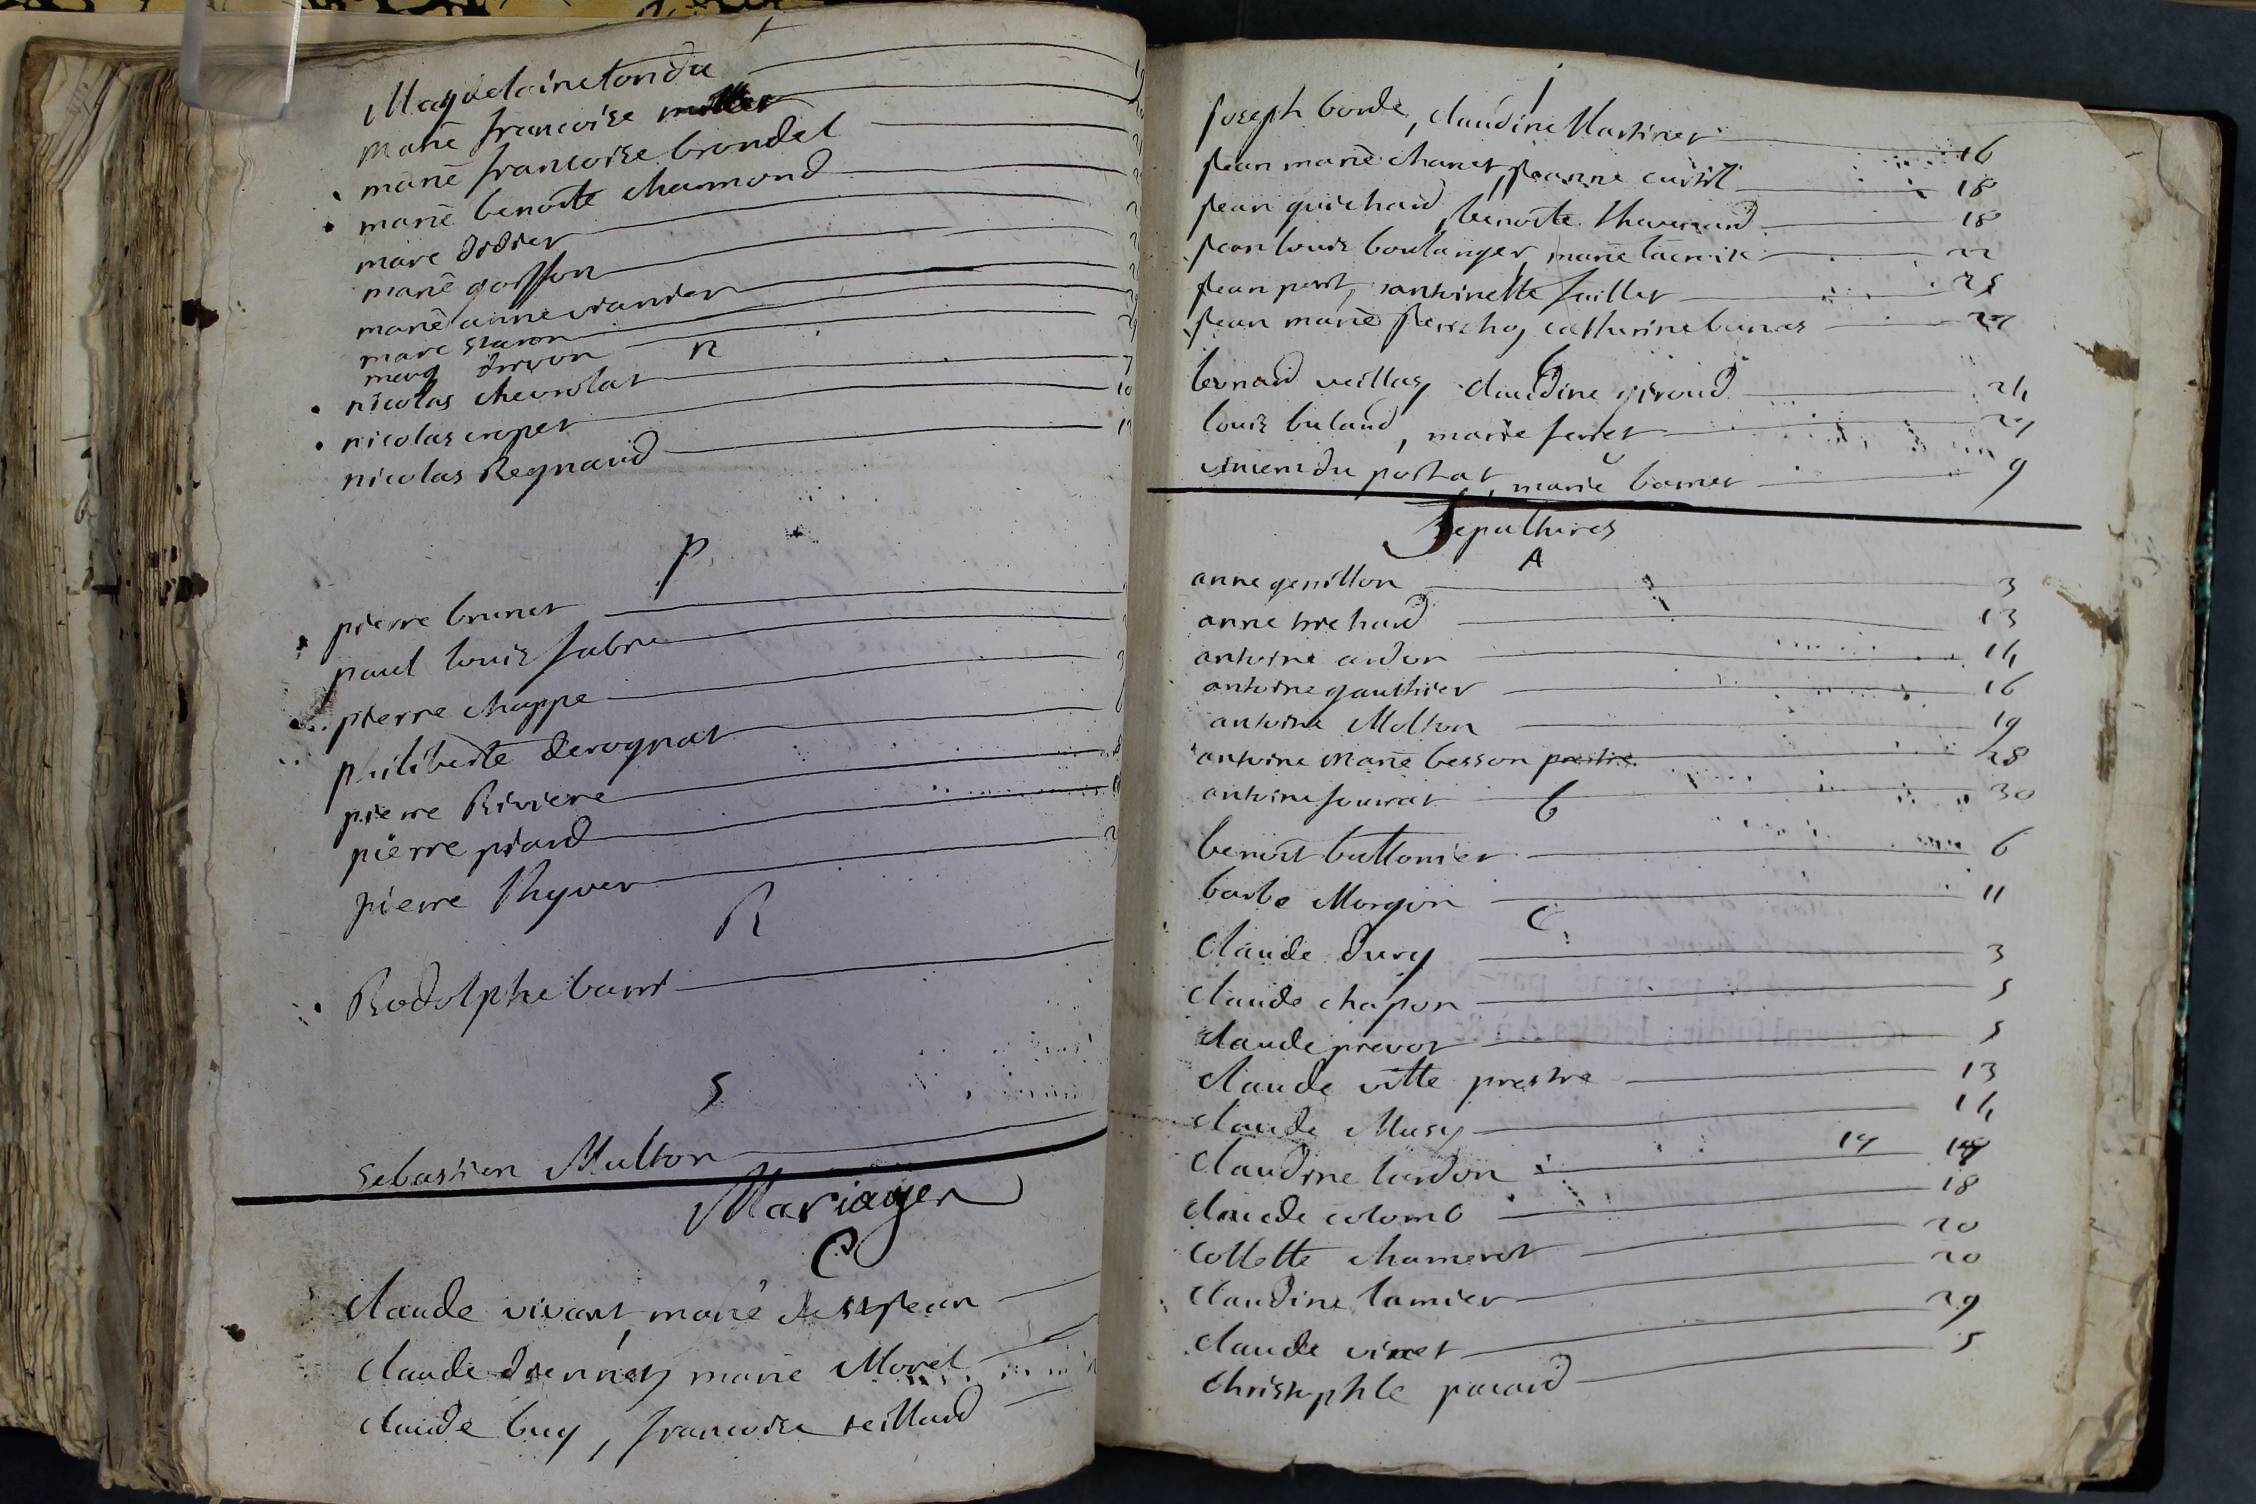 Magdelaine tondu
marie francoise
marie francoise brondel
marie benoite chamond
marc didier
marie goiffon
marie anne viandier
marc staron
n
nicolas chevrolat 7
nicolas croper 10
nicolas Regnaud
P
pierre brunet
paul louis fabre
pierre chappe
philiberte derognat
pierre Riviere
pierre piard
pierre Thyver
R
Rodolphe
S
sebastien Multon
Mariages
C
claude vivant, marie de st jean
claude marie Morel
claude buy, francoise teillard
j
joseph borde, claudine Martinet 16
jean marie chanet, jeanne curtil 18
jean guichard, benoite thevenard 18
jean louis boulanger, marie lacroix 22
jean petit, antoinette 25
jean marie catherine bunas 27
veillas claudine giroud 24
louis buland, marie ferret 27
v
vincent du portat, marie 9
Sepultures
A
anne genillon 3
anne trichard 13
antoine ardon 14
antoine gauthier 16
antoine Molton 19
antoine marie besson prestre 28
antoine 30
b
benoit buttonier 6
barbe Morgon 11
C
claude dury 3
claude chapon 5
claude prevot 5
claude vitte prestre 13
claude Musy 14
claudine lardon 17
claude colomb 18
collette chamerot 20
claudine lamier 20
claude vinet 29
christophle pacard 5